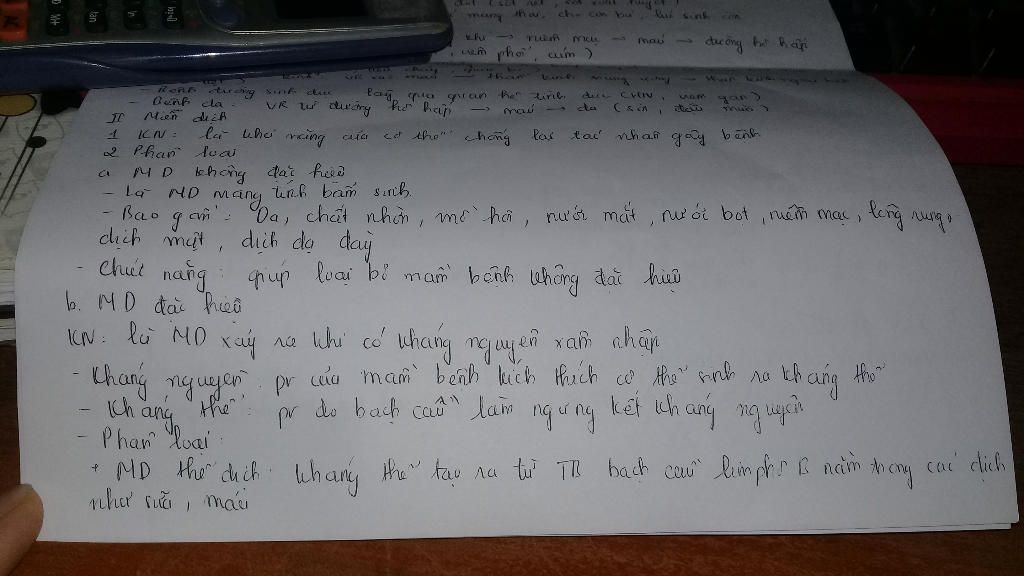 mang thai, cho con bú,
khí → niêm mạc → máu → đường hô hấp
, viêm phổi, cúm)
- Bệnh đường sinh dục: lây qua quan hệ tình dục (HIV, viêm gan)
- Bệnh da: VR từ đường hô hấp → máu → da (sởi, đậu mùa)
II Miễn dịch
1 KN: là khả năng của cơ thể chống lại tác nhân gây bệnh
2 Phân loại
a MD không đặc hiệu
- Là MD mang tính bẩm sinh
- Bao gồm: Da, chất nhờn, mồ hôi, nước mắt, nước bọt, niêm mạc, lông rung,
dịch mật, dịch dạ dày
- Chức năng: giúp loại bỏ mầm bệnh không đặc hiệu
b. MD đặc hiệu
KN: là MD xảy ra khi có kháng nguyên xâm nhập
- Kháng nguyên: pr của mầm bệnh kích thích cơ thể sinh ra kháng thể
- Kháng thể: pr do bạch cầu làm ngưng kết kháng nguyên
- Phân loại:
+ MD thể dịch: kháng thể tạo ra từ TB bạch cầu limphô B nằm trong các dịch
như sữa, máu